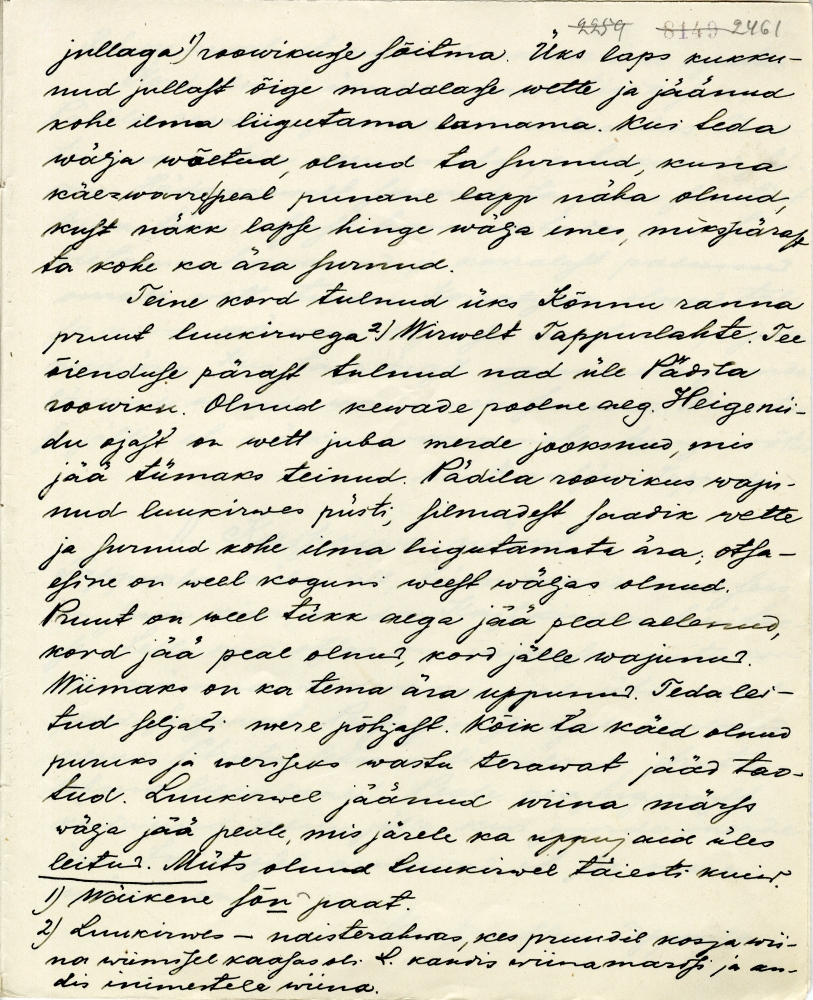 2259 8149 2461
jullaga¹) roowikusse sõitma. Üks laps kukku-
nud jullast õige madalasse wette ja jäänud
kohe ilma liigutama lamama. Kui teda
wälja wõetud, olnud ta surnud, kuna
käe peal punane lapp näha olnud,
kust näkk lapse hinge wälja imes, mikspärast
ta kohe ka ära surnud.
Teine kord tulnud üks Kõnnu ranna
pruut luukirwega²) Wirwelt Tappurlahte. Tee
õienduse pärast tulnud nad üle Pädila
roowiku. Olnud kewade poolne aeg. Heigenii-
du ojast on wett juba merde jooksnud, mis
jää tümaks teinud. Pädila roowikus waju-
nud luukirwes püsti, silmadest saadik wette
ja surnud kohe ilma liigutamata ära; otsa-
esine on weel koguni weest wäljas olnud.
Pruut on weel tükk aega jää peal aelenud,
kord jää peal olnud, kord jälle wajunud.
Wiimaks on ka tema ära uppunud. Teda lei-
tud seljali mere põhjast. Kõik ta käed olnud
puruks ja weriseks wastu terawat jääd tao-
tud. Luukirwel jäänud wiina märss
wälja jää peale, mis järele ka uppujaid üles
leitud. Müts olnud Luukirwel täiesti kuiw.
1) Wäikene sõn paat.
2) Luukirwes – naisterahwas, kes pruudil kosja wii-
na wiimisel kaasas oli. L. kandis wiinamärssi ja an-
dis inimestele wiina.